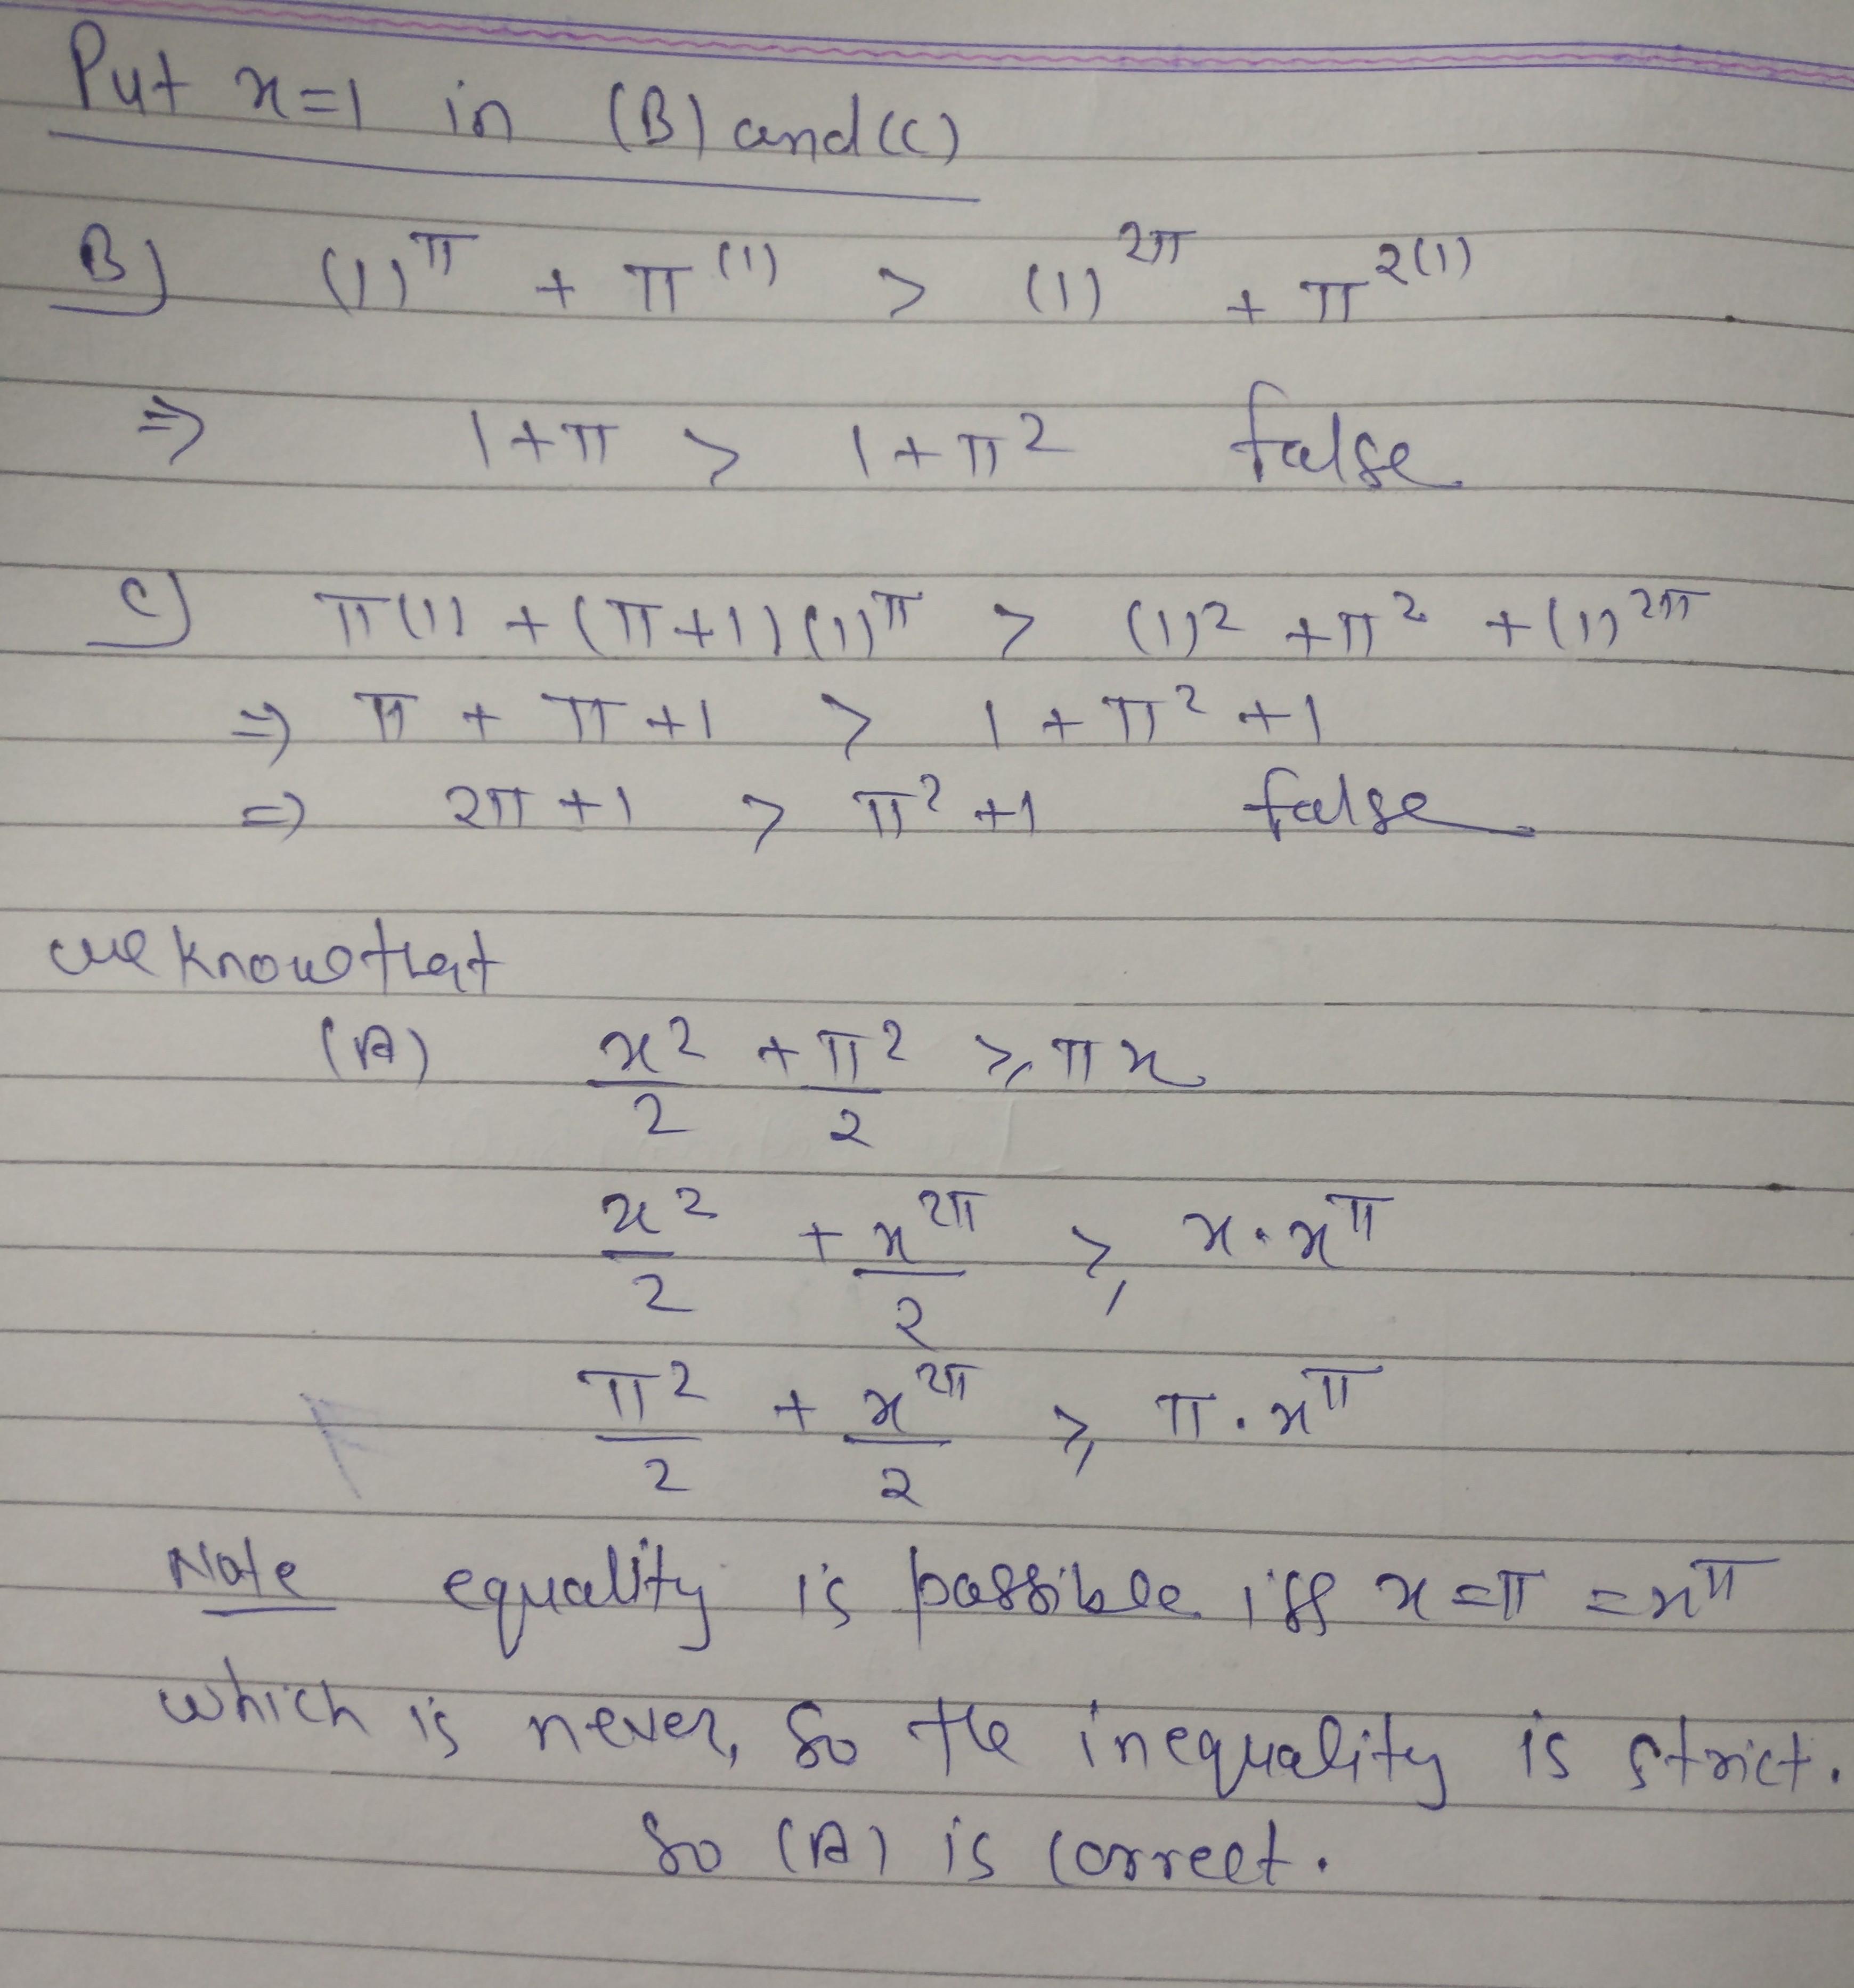 Put x=1 in (B) and (C)
B) (1)^π + π^(1) > (1)^2π + π^2(1)
⇒ 1+π > 1+π² false
C) π(1) + (π+1)(1)^π > (1)² + π² + (1)^2π
⇒ π + π+1 > 1 + π² + 1
⇒ 2π+1 > π²+1 false
we know that
(A) x²/2 + π²/2 ≥ πx
x²/2 + x^2π/2 ≥ x·x^π
π²/2 + x^2π/2 ≥ π·x^π
Note equality is possible iff x=π=x^π
which is never, so the inequality is strict.
So (A) is correct.